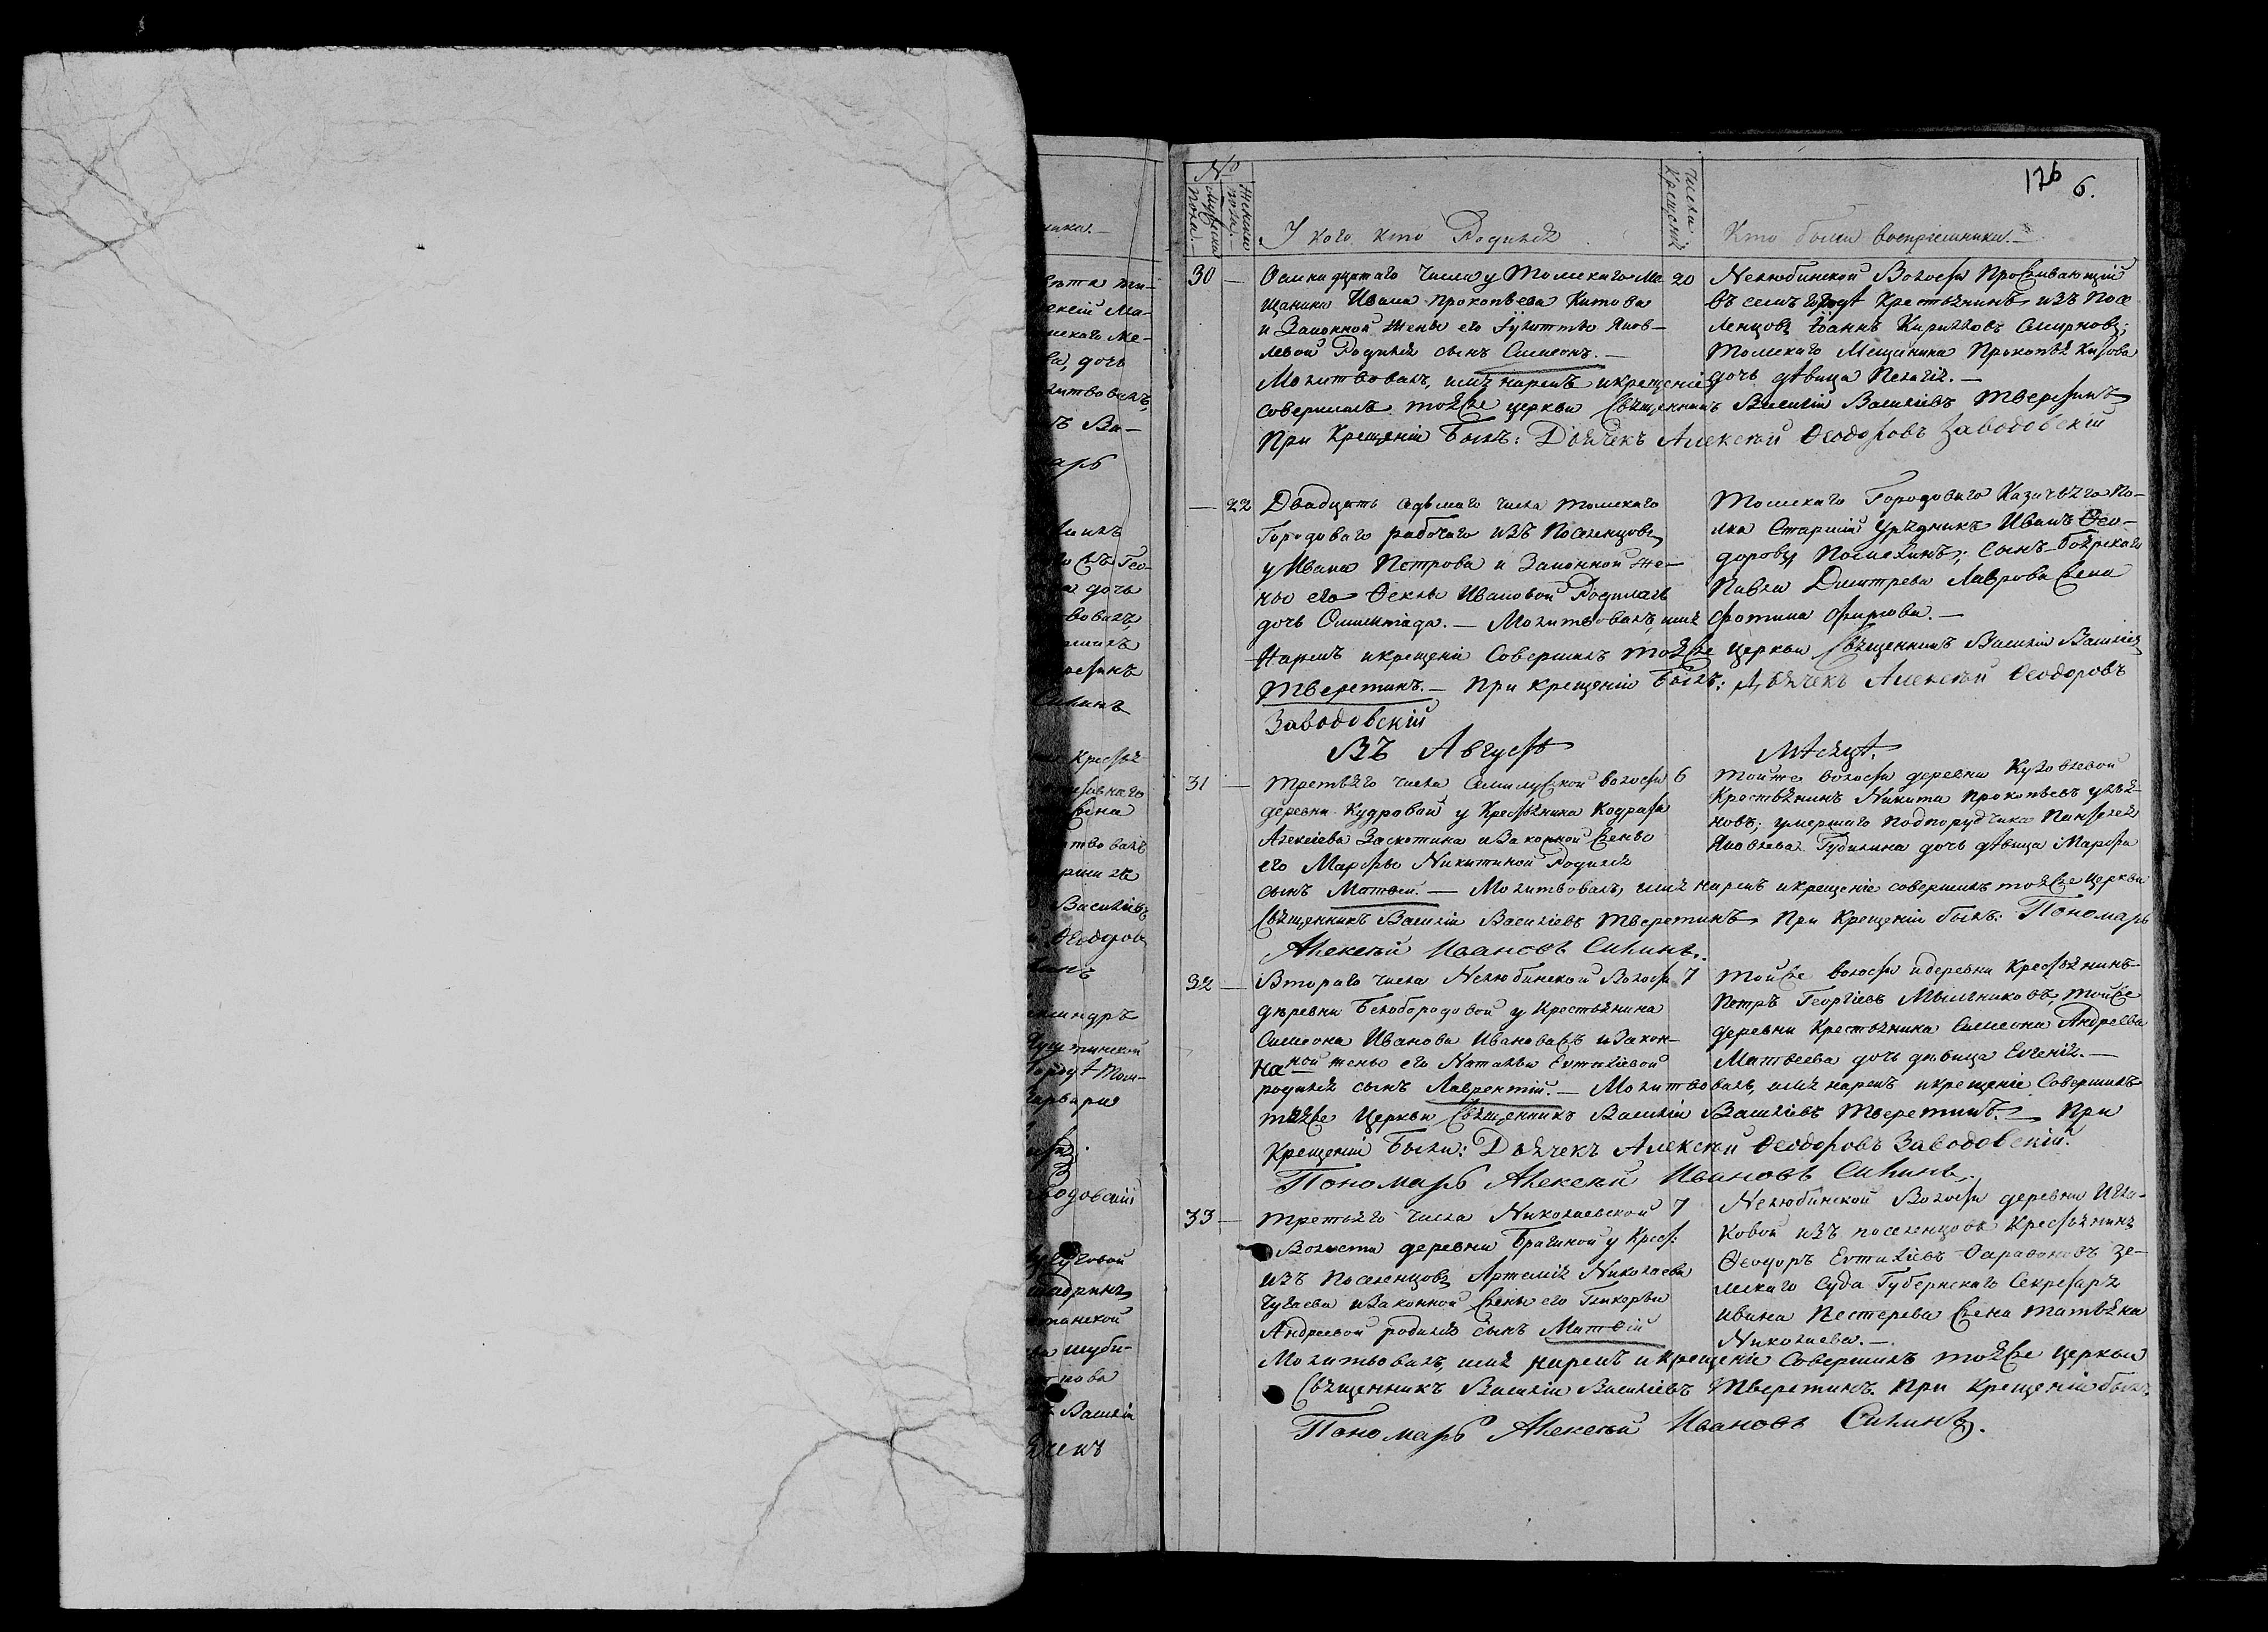 176 6.
№
Мужеска пола.
Женска пола.
У кого кто Родился
Числа Крещенія
Кто были восприемники.
30 — Осмнадцатаго числа у Томскаго Ме- 20
щанина Ивана Прокопьева Китова
и Законной жены его Іулитты Яков-
левой Родился сынъ Симеонъ. —
Нелюбинской Волости Проживающій
въ семъ городѣ Крестьянинъ изъ Посе
ленцовъ Іоаннъ Кириловъ Смирновъ;
Томскаго Мещанина Прокопья Китова
дочь дѣвица Пелагія. —
Молитвовалъ, имя нарекъ и крещеніе
совершилъ тояже церкви Священникъ Василій Васильевъ Тверетинъ
При Крещеніи Былъ: Дьячекъ Алексѣй Ѳеодоровъ Заводовскій
— 22 Двадцать седьмаго числа Томскаго
Городоваго рабочаго изъ Поселенцовъ
у Ивана Петрова и Законной же-
ны его Ѳеклы Ивановой Родилась
дочь Олимпіада. — Молитвовалъ, имя
Томскаго Городоваго Казачьяго По-
лка Старшій Урядникъ Иванъ Ѳео-
доровъ; Сынъ-Боярскаго
Павла Дмитрева Лаврова жена
Фотина
Нарекъ и крещеніе Совершилъ тояже церкви Священникъ Василій Васильевъ
Тверетинъ. — При крещеніи Былъ: Дьячекъ Алексѣй Ѳеодоровъ
Заводовскій
Въ Августѣ Мѣсяцѣ.
31 — Третьяго числа Семилужской волости 6
деревни Кудровой у Крестьянина Кодрата
Алексѣева Заскотина и Законной жены
его Марфы Никитиной Родился
Тойже волости деревни Кузовлевой
Крестьянинъ Никита Прокопьевъ Улья-
новъ; умершаго Подпорудчика Пантелея
Яковлева Губилина дочь дѣвица Марфа
сынъ Матѳей. — Молитвовалъ, имя нарекъ и крещеніе совершилъ тояже церкви
Священникъ Василій Васильевъ Тверетинъ При Крещеніи былъ: Пономарь
Алексѣй Ивановъ Силинъ.
32 — Втораго числа Нелюбинской Волости 7
деревни Белобородовой у Крестьянина
Симеона Иванова и Закон-
ной жены его Натальи Евтихіевой
Тойже волости и деревни Крестьянинъ
Петръ Георгіевъ Мыльниковъ, тойже
деревни Крестьянина Симеона Андреева
Матвеева дочь дѣвица Евгенія. —
родился сынъ Лаврентій. — Молитвовалъ, имя нарекъ и крещеніе Совершилъ
тояже Церкви Священникъ Василій Васильевъ Тверетинъ. — При
Крещеніи Были: Дьячекъ Алексѣй Ѳеодоровъ Заводовскій.
Пономарь Алексѣй Ивановъ Силинъ.
33 — Третьяго числа Николаевской 7
Волости деревни Брагиной у Крест:
изъ Поселенцовъ Артемія Николаева
Чугаева и Законной жены его Гликерьи
Андреевой родился сынъ Матѳій
Нелюбинской Волости деревни Игла-
ковой изъ поселенцовъ Крестьянинъ
Ѳеодоръ Евтихіевъ Зе-
мскаго Суда Губернскаго Секретаря
Ивана Пестерева жена Татьяна
Николаева. —
Молитвовалъ, имя нарекъ и крещеніе Совершилъ тояже церкви
Священникъ Василій Васильевъ Тверетинъ. При Крещеніи былъ
Пономарь Алексѣй Ивановъ Силинъ.